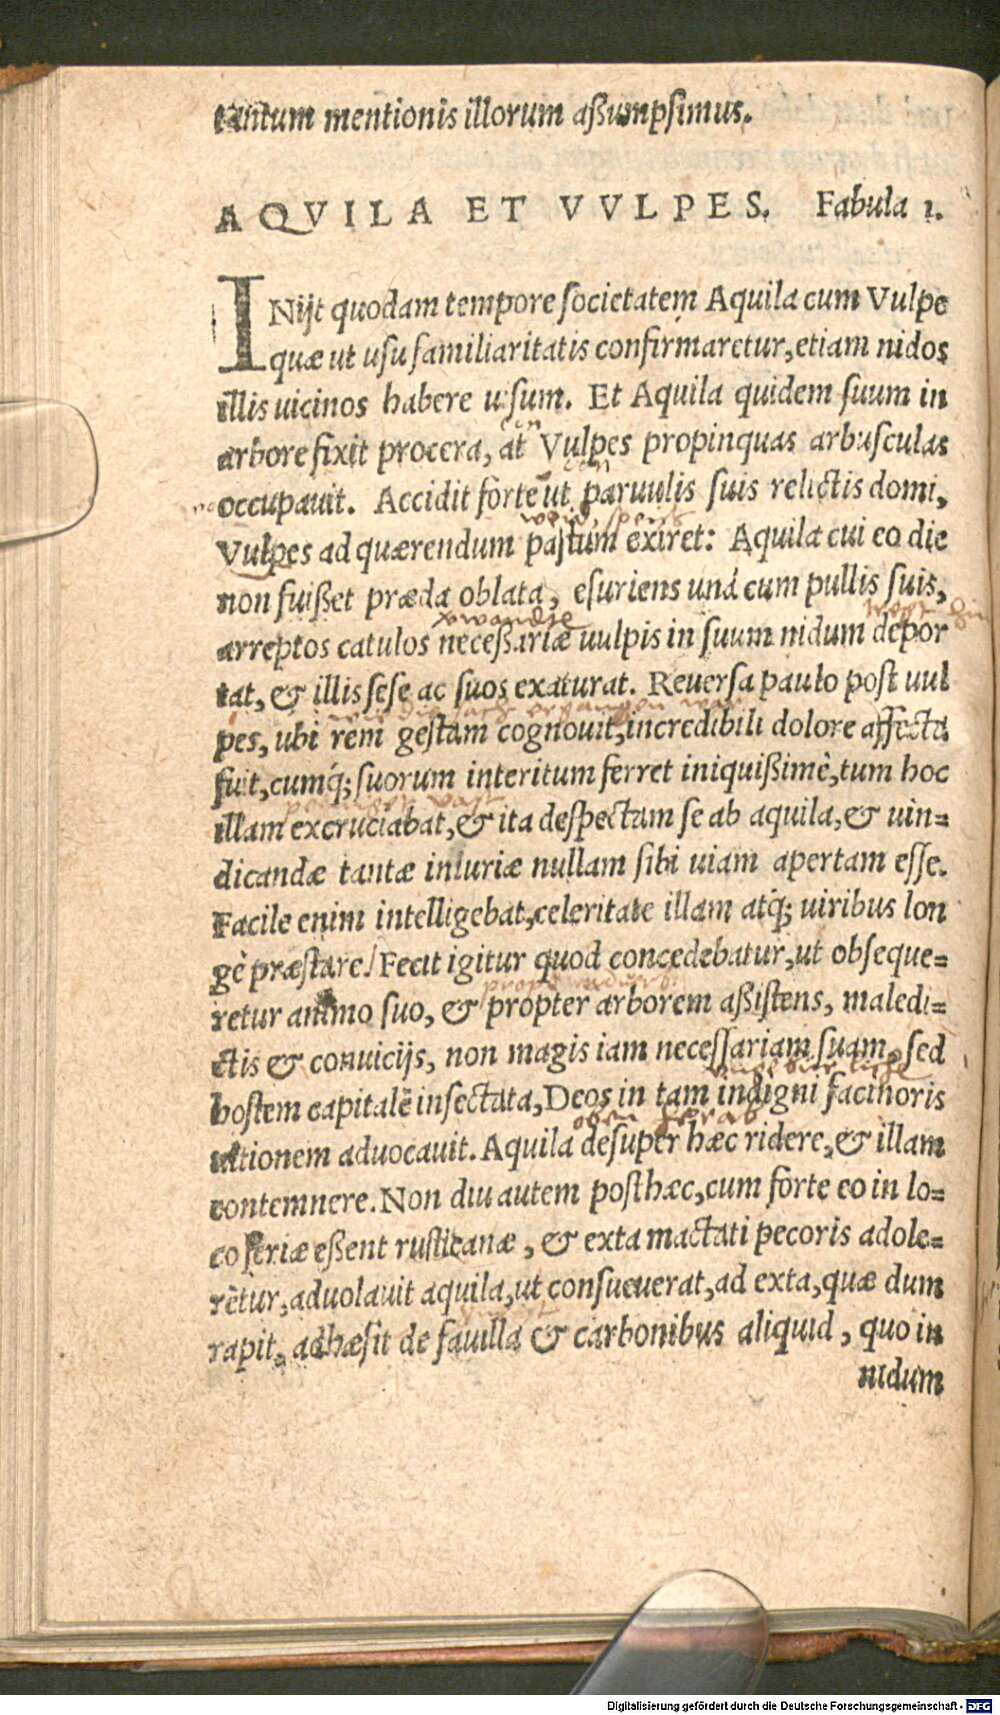 tantum mentionis illorum aßumpsimus.
AQVILA ET VVLPES. Fabula 1.
INijt quodam tempore societatem Aquila cum Vulpe
quæ ut usu familiaritatis confirmaretur, etiam nidos
illis uicinos habere uisum. Et Aquila quidem suum in
arbore fixit procera, at Vulpes propinquas arbusculas
occupauit. Accidit forte ut paruulis suis relictis domi,
Vulpes ad quærendum pastum exiret: Aquila cui eo die
speis
non fuißet præda oblata, esuriens unà cum pullis suis,
arreptos catulos neceßariæ uulpis in suum nidum depor
tat, & illis sese ac suos exaturat. Reuersa paulo post uul
pes, ubi rem gestam cognouit, incredibili dolore affecta
fuit, cumq́; suorum interitum ferret iniquißimè, tum hoc
illam excruciabat, & ita despectam se ab aquila, & uin=
dicandæ tantæ iniuriæ nullam sibi uiam apertam esse.
Facile enim intelligebat, celeritate illam atq́; uiribus lon
gè præstare. Fecit igitur quod concedebatur, ut obseque=
retur animo suo, & propter arborem aßistens, maledi=
ctis & conuicijs, non magis iam necessariam suam, sed
hostem capitalē insectata, Deos in tam indigni facinoris
oben herab
ultionem aduocauit. Aquila desuper hæc ridere, & illam
contemnere. Non diu autem posthæc, cum forte eo in lo=
co feriæ eßent rusticanæ, & exta mactati pecoris adole=
rētur, aduolauit aquila, ut consueuerat, ad exta, quæ dum
rapit, adhæsit de fauilla & carbonibus aliquid, quo in
nidum
Digitalisierung gefördert durch die Deutsche Forschungsgemeinschaft - DFG